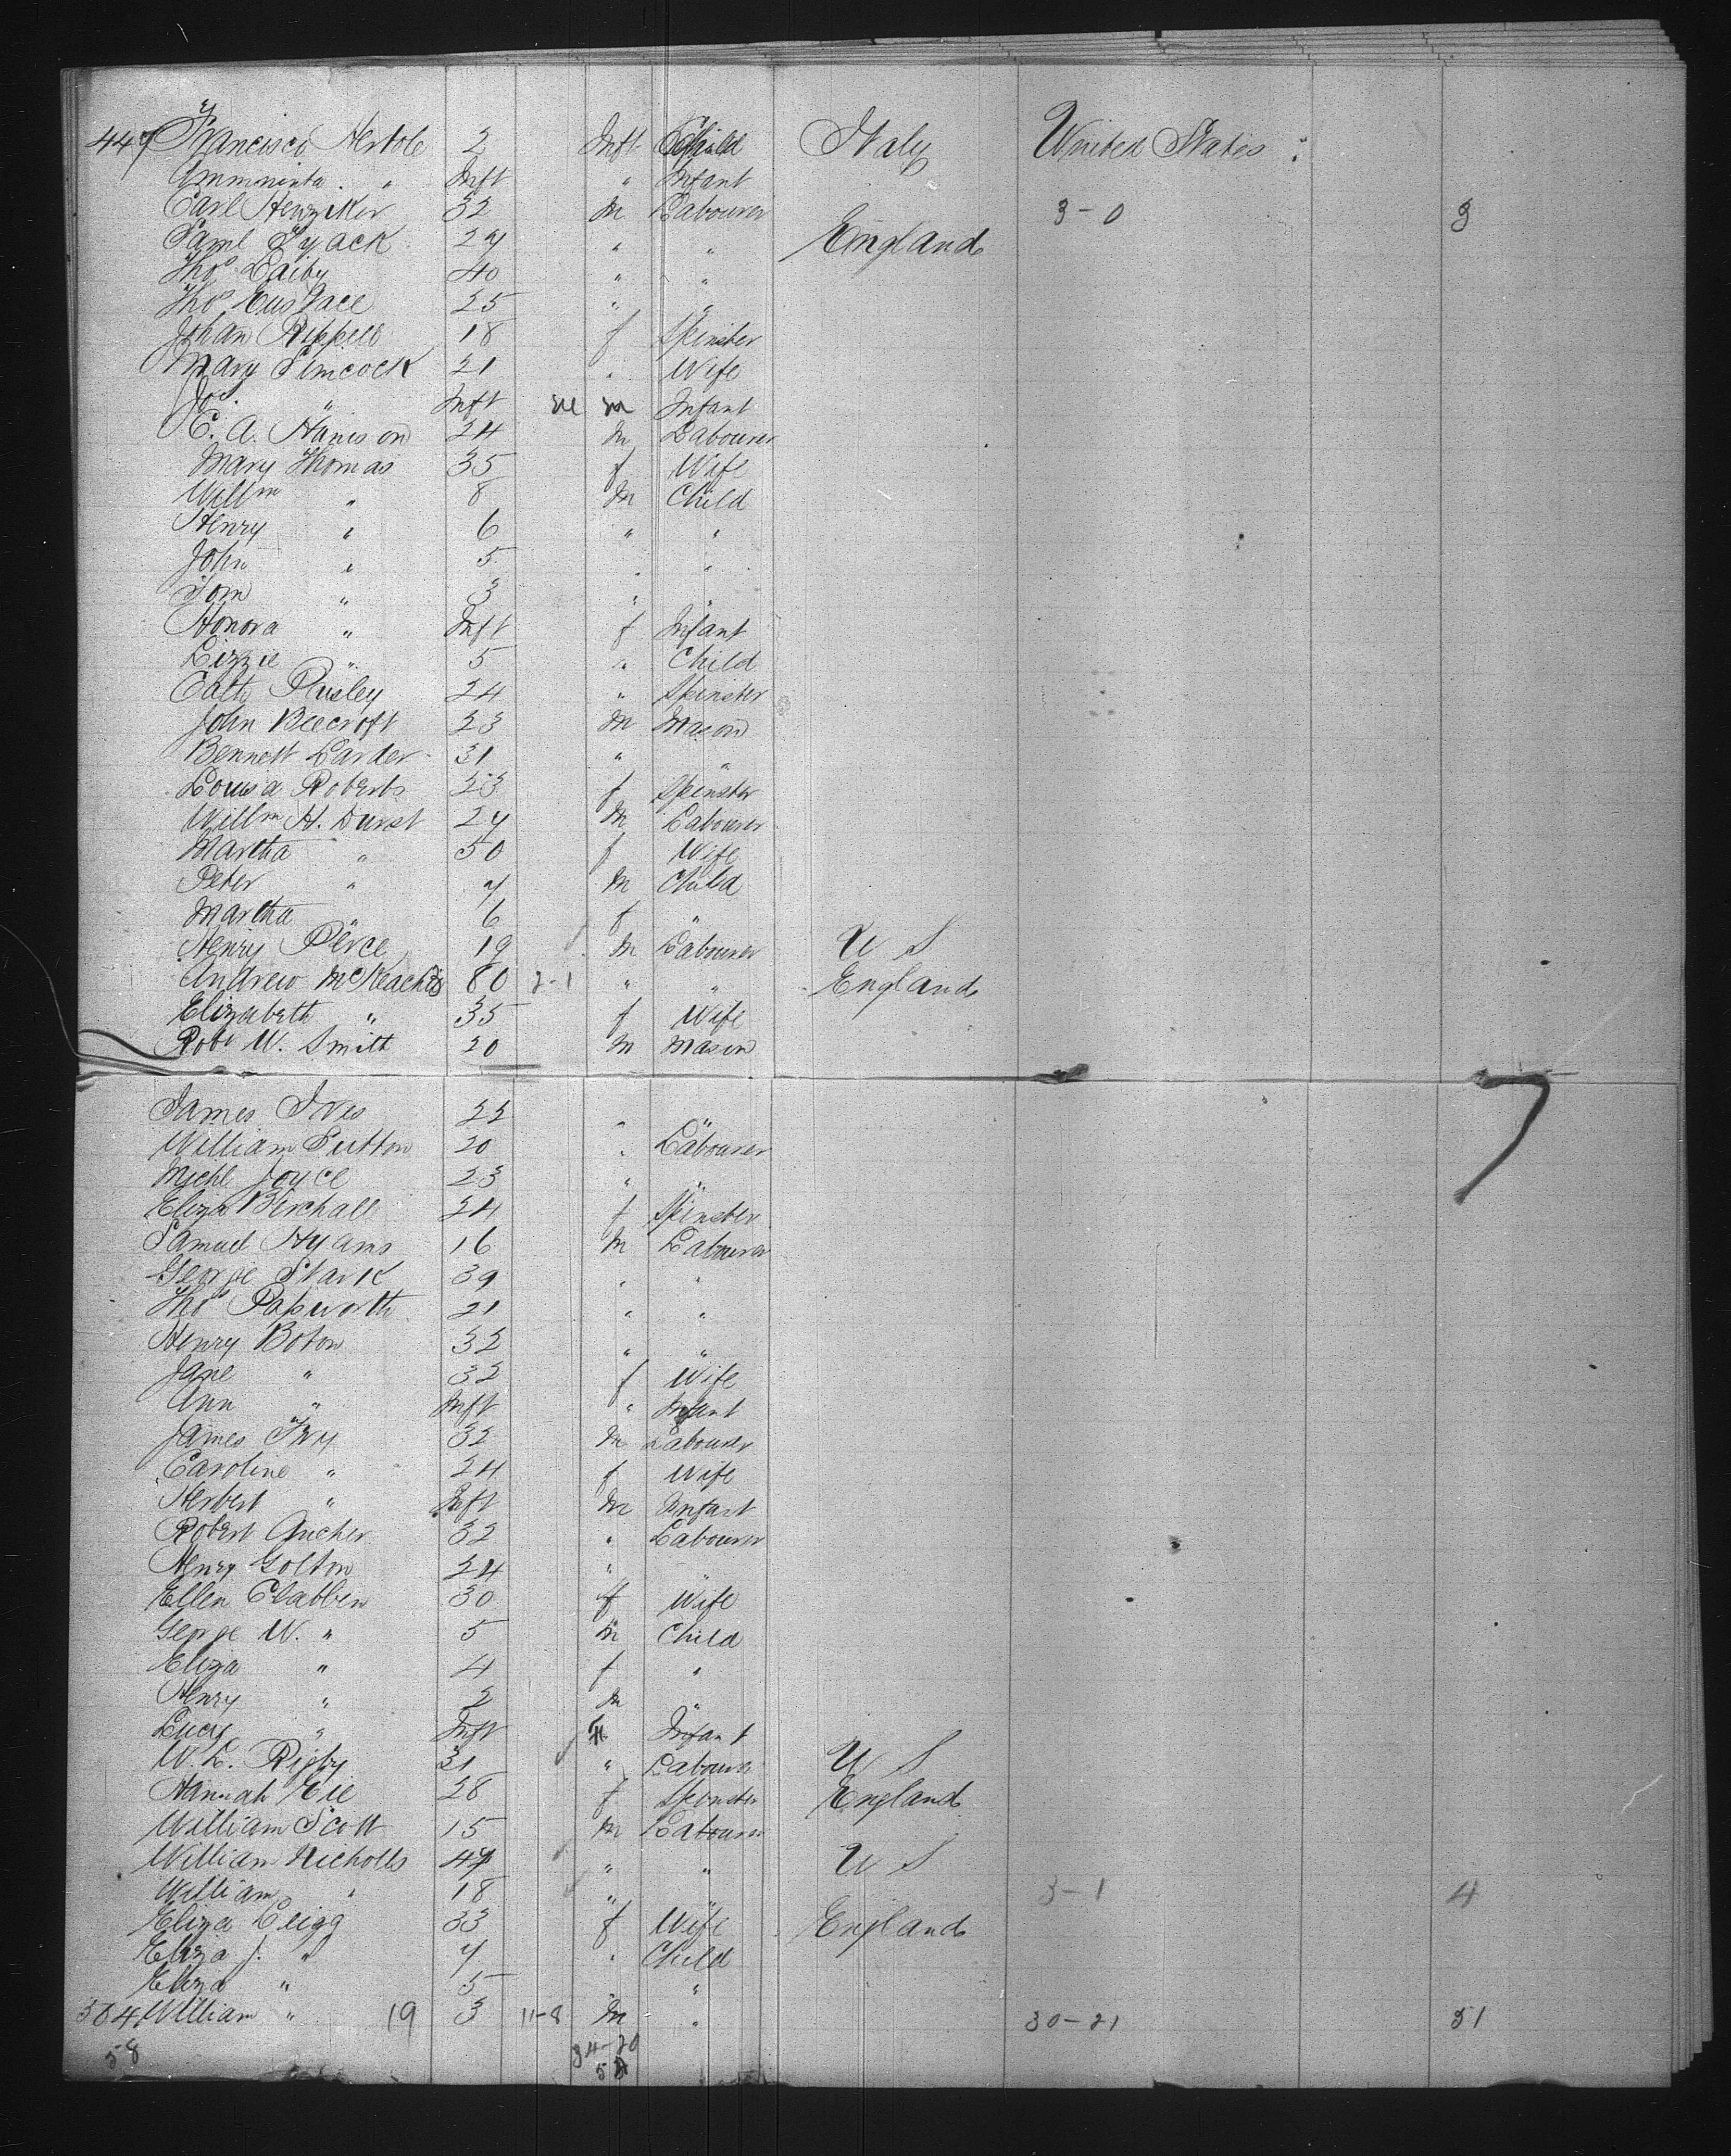 447 Francisco Nertole 2 Inft Child Italy United States
Ammninta " Inft " Infant
Carl Henziker 32 M Labourer 3-0 3
Saml Tyack 27 " " England
Thos Daiby 40 " "
Thos Eustace 25 " "
Johan Rippell 18 f Spinster
Mary Simcock 21 " Wife
Jos. " Inft M M Infant
C. A. Hanison 24 M Labourer
Mary Thomas 35 f Wife
Willm " 8 M Child
Henry " 6 " "
John " 5 " "
Tom " 3 " "
Honora " Inft f Infant
Lizzie " 5 " Child
Cath Paisley 24 " Spinster
John Beecroft 23 M Mason
Bennett Larder 31 " "
Louisa Roberts 23 f Spinster
Willm H. Durst 27 M Labourer
Martha " 50 f Wife
Peter " 7 M Child
Martha " 6 f "
Henry Perce 19 M Labourer U S
Andrew 80 2-1 " " England
Elizabeth " 35 f Wife
Robt W. Smith 20 M Mason
James Ives 22 " "
William Sutton 20 " Labourer
Michl Joyce 23 " "
Eliza Birchall 24 f Spinster
Samuel Hyams 16 M Labourer
George Stark 39 " "
Thos Papworth 21 " "
Henry Boton 32 " "
Jane " 32 f Wife
Ann " Inft " Infant
James Ivy 32 M Labourer
Caroline " 24 f Wife
Herbert " Inft M Infant
Robert Archer 32 " Labourer
Henry Golton 24 "
Ellen Clabben 30 f Wife
George W. " 5 M Child
Eliza " 4 f "
Henry " 2 M "
Lucy " Inft Infant
W. L. Rigby 31 " Labourer U S
Hannah 28 f Spinster England
William Scott 15 M Labourer
William Nicholls 47 " " U S
William " 18 " " 3-1 4
Eliza Clegg 33 f Wife England
Eliza J. " 7 " Child
Eliza " 5 "
504 William " 19 3 11-8 M " 30-21 51
58 34-20